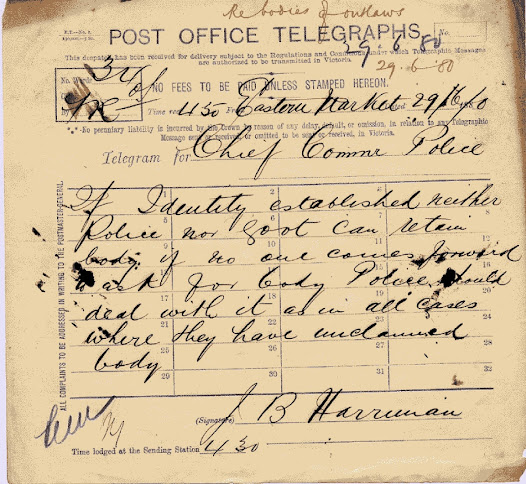 Re bodies of outlaws
POST OFFICE TELEGRAPHS.
No.
29.6.80
This despatch has been received for delivery subject to the Regulations and Conditions under which Telegraphic Messages
are authorized to be transmitted in Victoria.
29-6-'80
No. Words
34
NO FEES TO BE PAID UNLESS STAMPED HEREON.
by
Time 4 50 From Eastern Market 29/6/80
*.* No pecuniary liability is incurred by the Crown by reason of any delay, default, or omission, in relation to any Telegraphic
Message sent or received, or omitted to be sent or received, in Victoria.
Telegram for Chief Commr Police
ALL COMPLAINTS TO BE ADDRESSED IN WRITING TO THE POSTMASTER-GENERAL.
If Identity established neither
Police nor Govt can retain
body if no one comes forward
to ask for body Police should
deal with it as in all cases
where they have unclaimed
body
(Signature) J B Harriman
Time lodged at the Sending Station 4 30